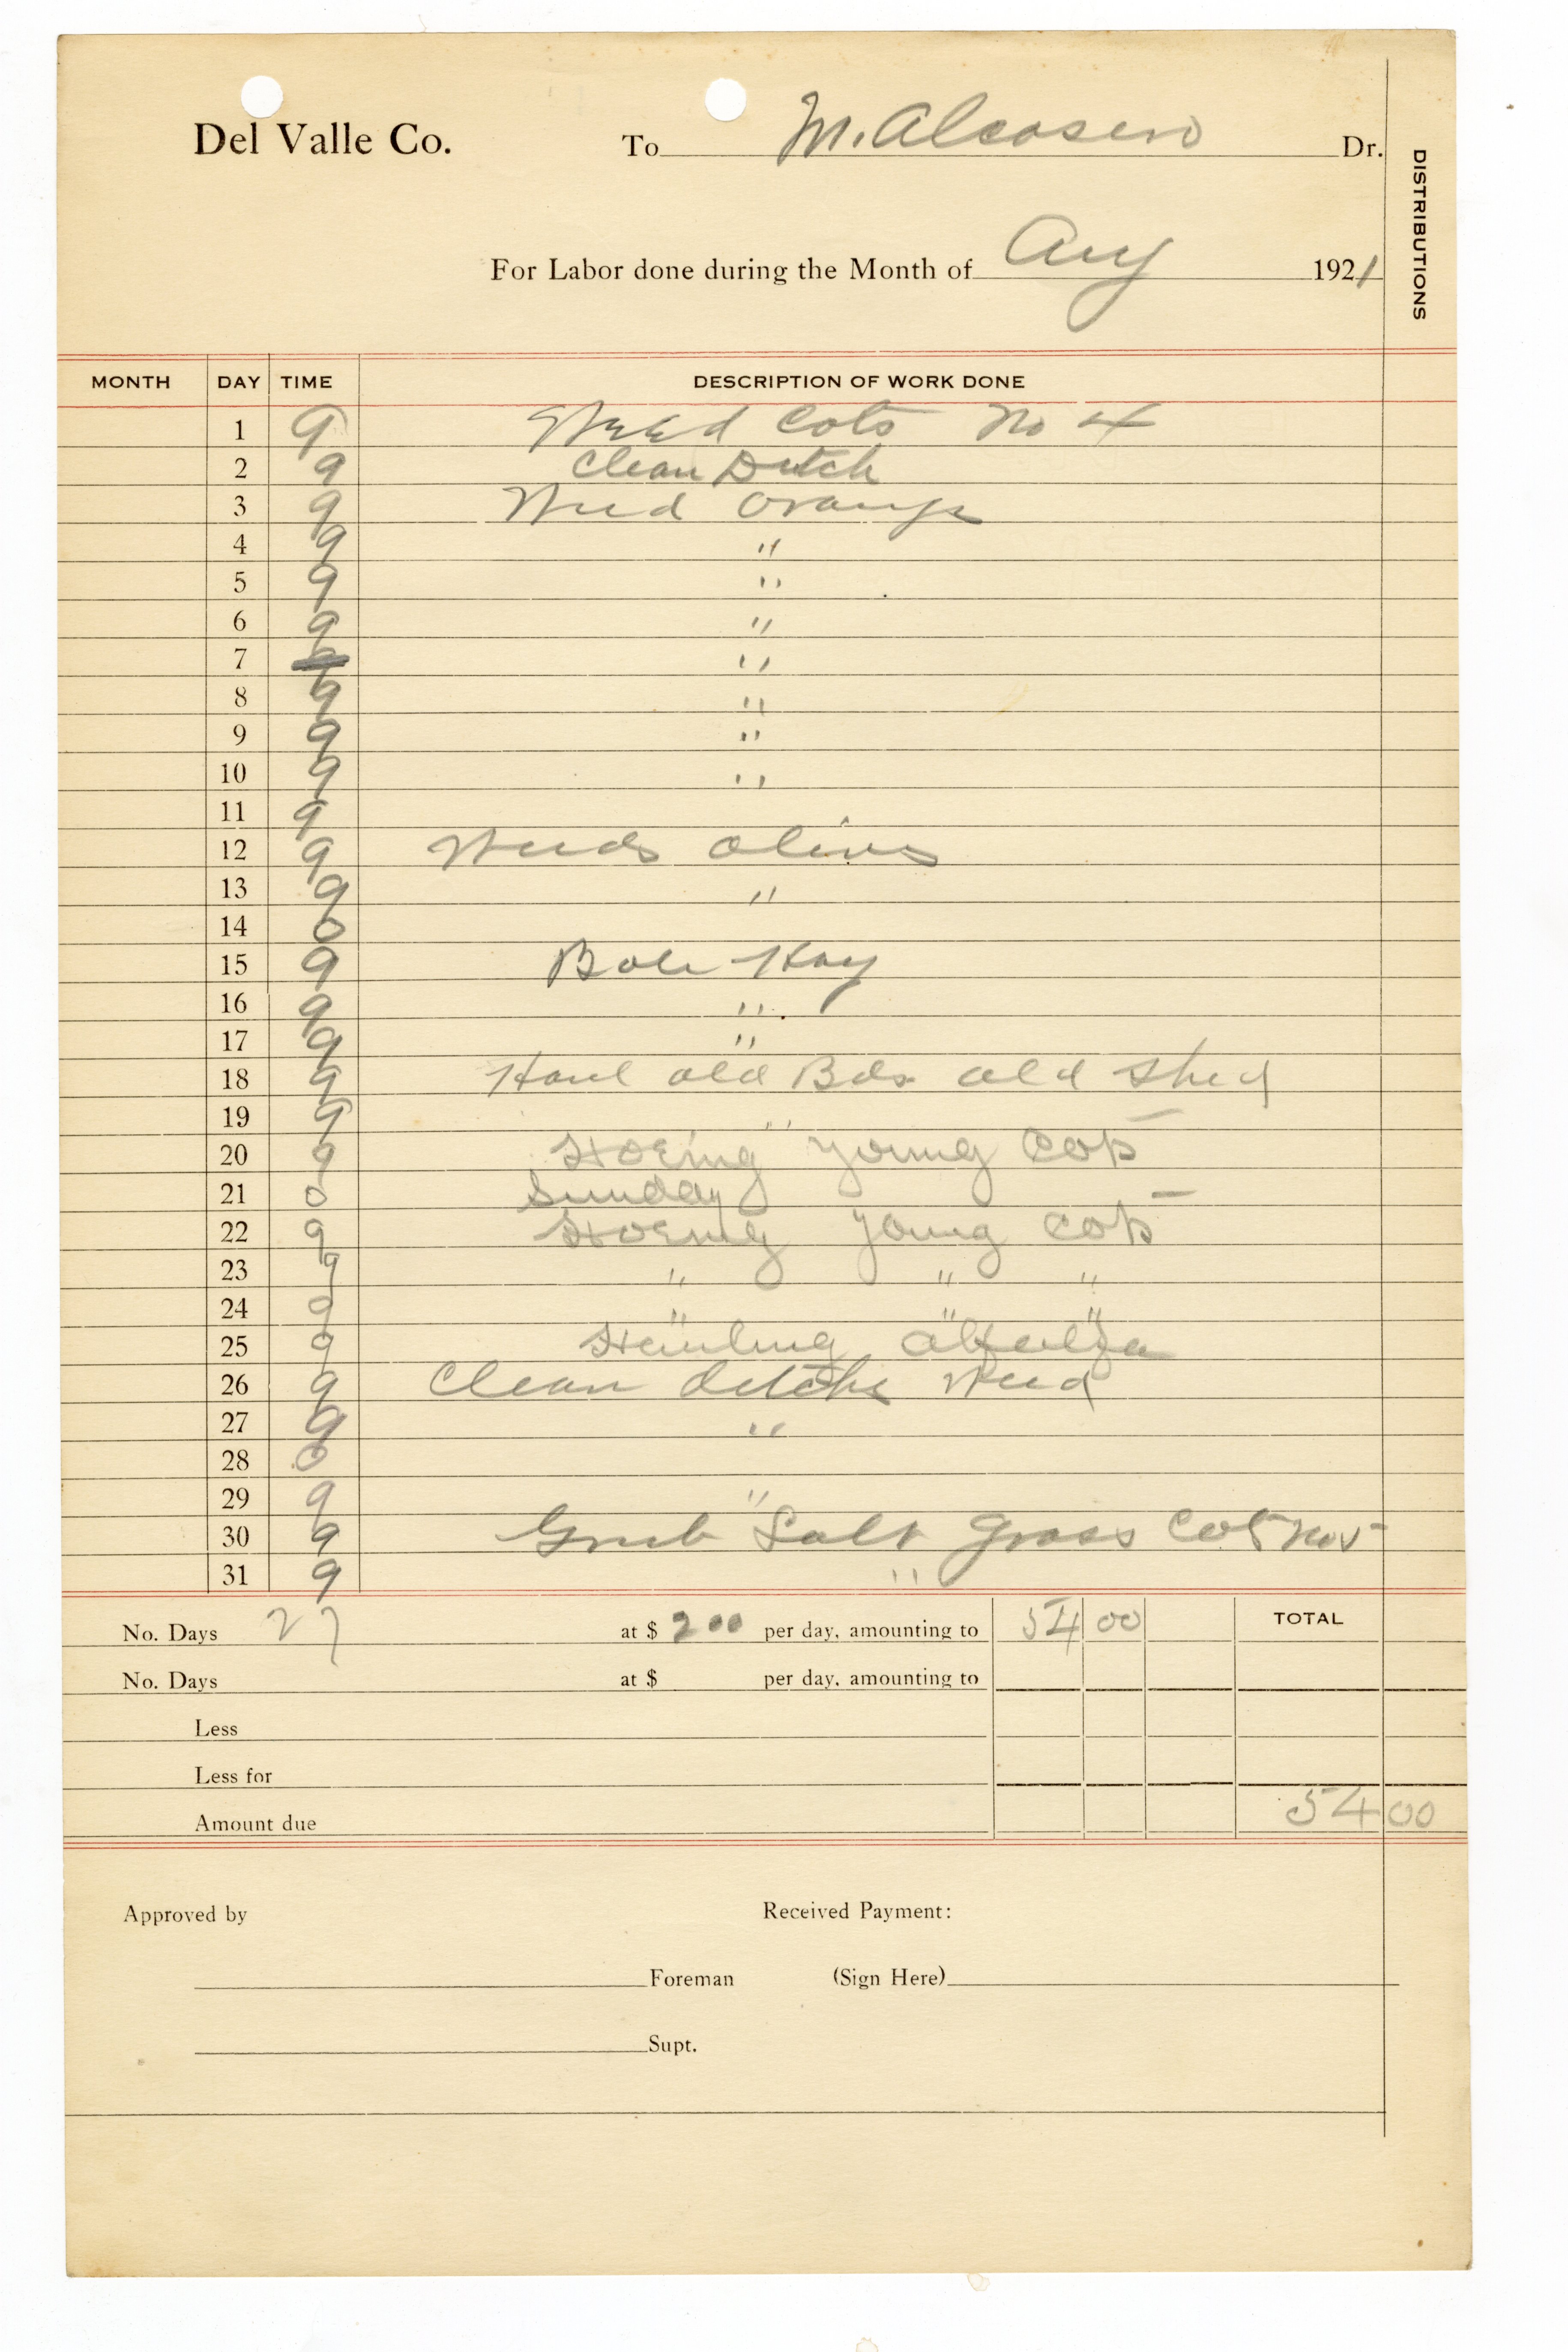 Del Valle Co. To M. Alcosero Dr.
DISTRIBUTIONS
For Labor done during the Month of Aug 1921
MONTH DAY TIME DESCRIPTION OF WORK DONE
1 9 Weed Cots No 4
2 9 Clean Ditch
3 9 Weed Orange
4 9 "
5 9 "
6 9 "
7 "
8 9 "
9 9 "
10 9 "
11 9
12 9 Weeds olives
13 9 "
14 0
15 9 Bale Hay
16 9 "
17 9 "
18 9 Haul old Bds old shed
19 9 "
20 9 Hoeing young cots
21 0 Sunday
22 9 Hoeing young cots
23 9 " " "
24 9 " " "
25 9 Hauling alfalfa
26 9 Clean ditche Weed
27 9 "
28 0
29 9 "
30 9 Grub Salt Grass Cots No 5
31 9 "
No. Days 27 at $ 2 00 per day, amounting to 54 00 TOTAL
No. Days at $ per day, amounting to
Less
Less for
Amount due 54 00
Approved by Received Payment:
Foreman (Sign Here)
Supt.